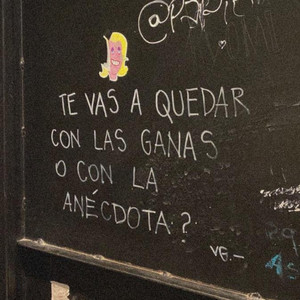 TE VAS A QUEDAR
CON LAS GANAS
O CON LA
ANÉCDOTA?
VG.-